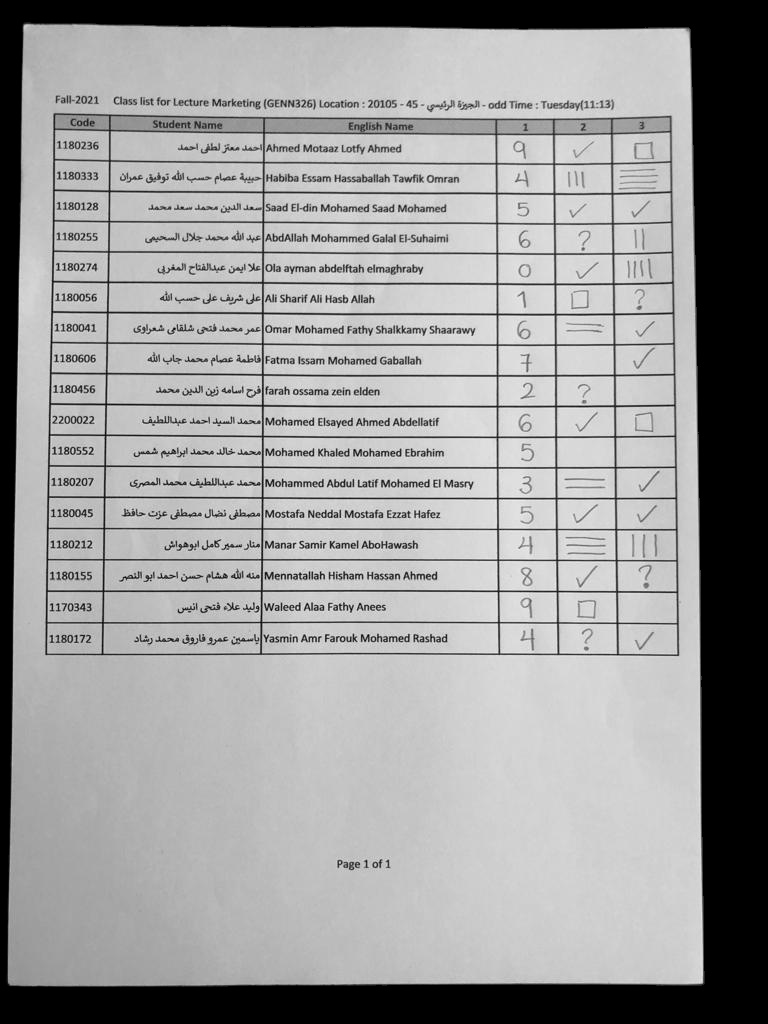 Fall-2021 Class list for Lecture Marketing (GENN326) Location : 20105 - 45 - الجيزة الرئيسي - odd Time : Tuesday(11:13)
Code Student Name English Name 1 2 3
1180236 احمد معتز لطفى احمد Ahmed Motaaz Lotfy Ahmed 9 ✓ □
1180333 حبيبة عصام حسب الله توفيق عمران Habiba Essam Hassaballah Tawfik Omran 4 |||
1180128 سعد الدين محمد سعد محمد Saad El-din Mohamed Saad Mohamed 5 ✓ ✓
1180255 عبد الله محمد جلال السحيمى AbdAllah Mohammed Galal El-Suhaimi 6 ? ||
1180274 علا ايمن عبدالفتاح المغربي Ola ayman abdelftah elmaghraby 0 ✓ ||||
1180056 على شريف على حسب الله Ali Sharif Ali Hasb Allah 1 □ ?
1180041 عمر محمد فتحى شلقامى شعراوى Omar Mohamed Fathy Shalkkamy Shaarawy 6 = ✓
1180606 فاطمة عصام محمد جاب الله Fatma Issam Mohamed Gaballah 7 ✓
1180456 فرح اسامه زين الدين محمد farah ossama zein elden 2 ?
2200022 محمد السيد احمد عبداللطيف Mohamed Elsayed Ahmed Abdellatif 6 ✓ □
1180552 محمد خالد محمد ابراهيم شمس Mohamed Khaled Mohamed Ebrahim 5
1180207 محمد عبداللطيف محمد المصرى Mohammed Abdul Latif Mohamed El Masry 3 = ✓
1180045 مصطفى نضال مصطفى عزت حافظ Mostafa Neddal Mostafa Ezzat Hafez 5 ✓ ✓
1180212 منار سمير كامل ابوهواش Manar Samir Kamel AboHawash 4 ≡ |||
1180155 منه الله هشام حسن احمد ابو النصر Mennatallah Hisham Hassan Ahmed 8 ✓ ?
1170343 وليد علاء فتحى انيس Waleed Alaa Fathy Anees 9 □
1180172 ياسمين عمرو فاروق محمد رشاد Yasmin Amr Farouk Mohamed Rashad 4 ? ✓
Page 1 of 1